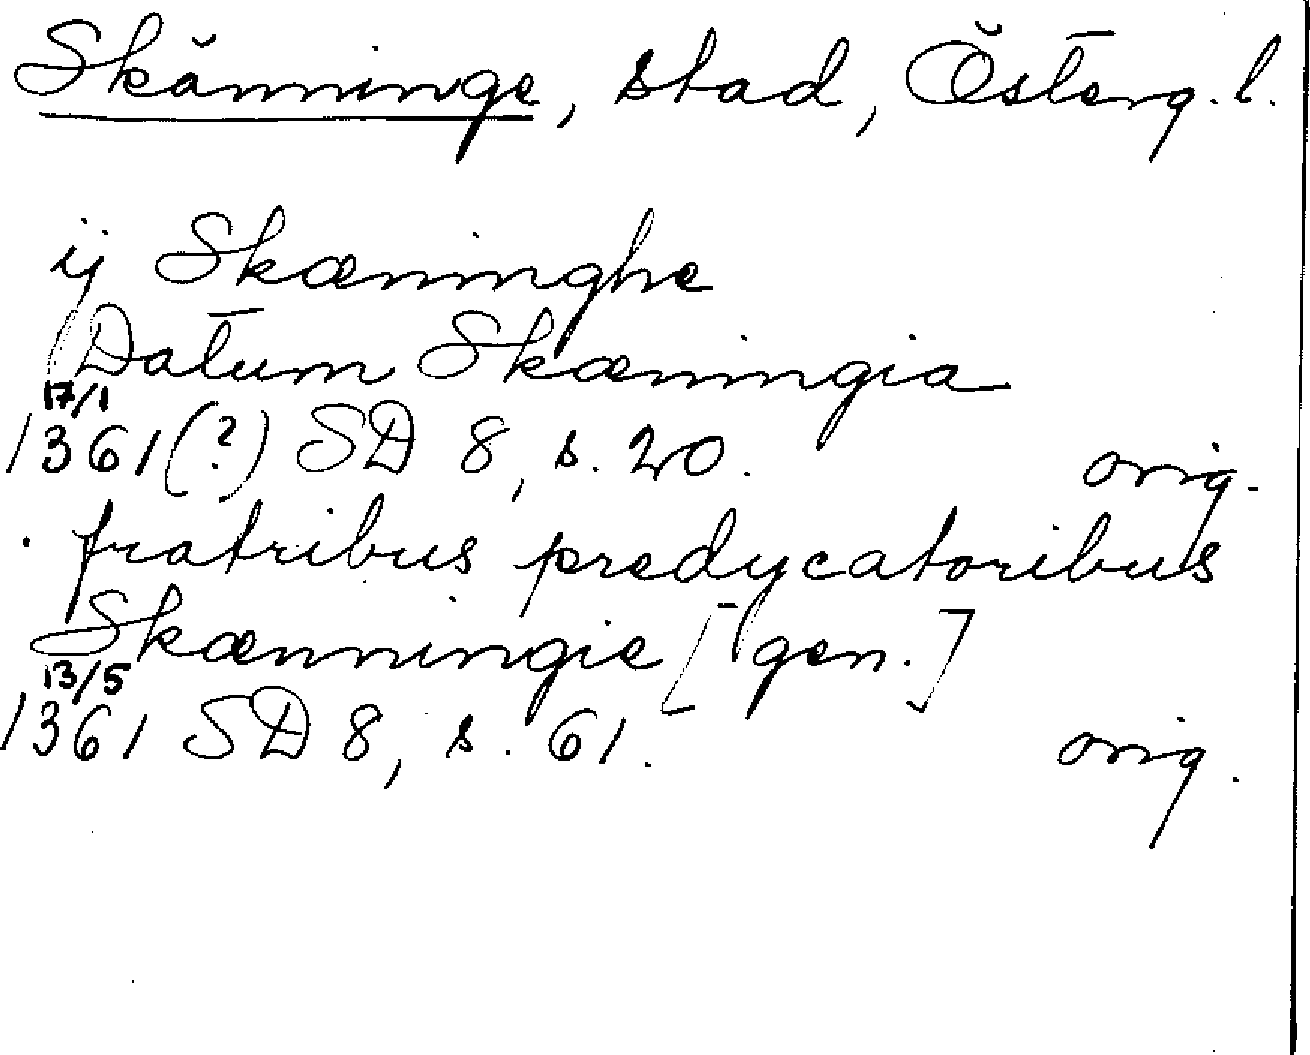 Skänninge, stad, Österg. l.
ij Skæninghe
Datum Skæningia
17/1
1361(?) SD 8, s. 20. orig.
fratribus predycatoribus
Skænningie [gen.]
13/5
1361 SD 8, s. 61. orig.